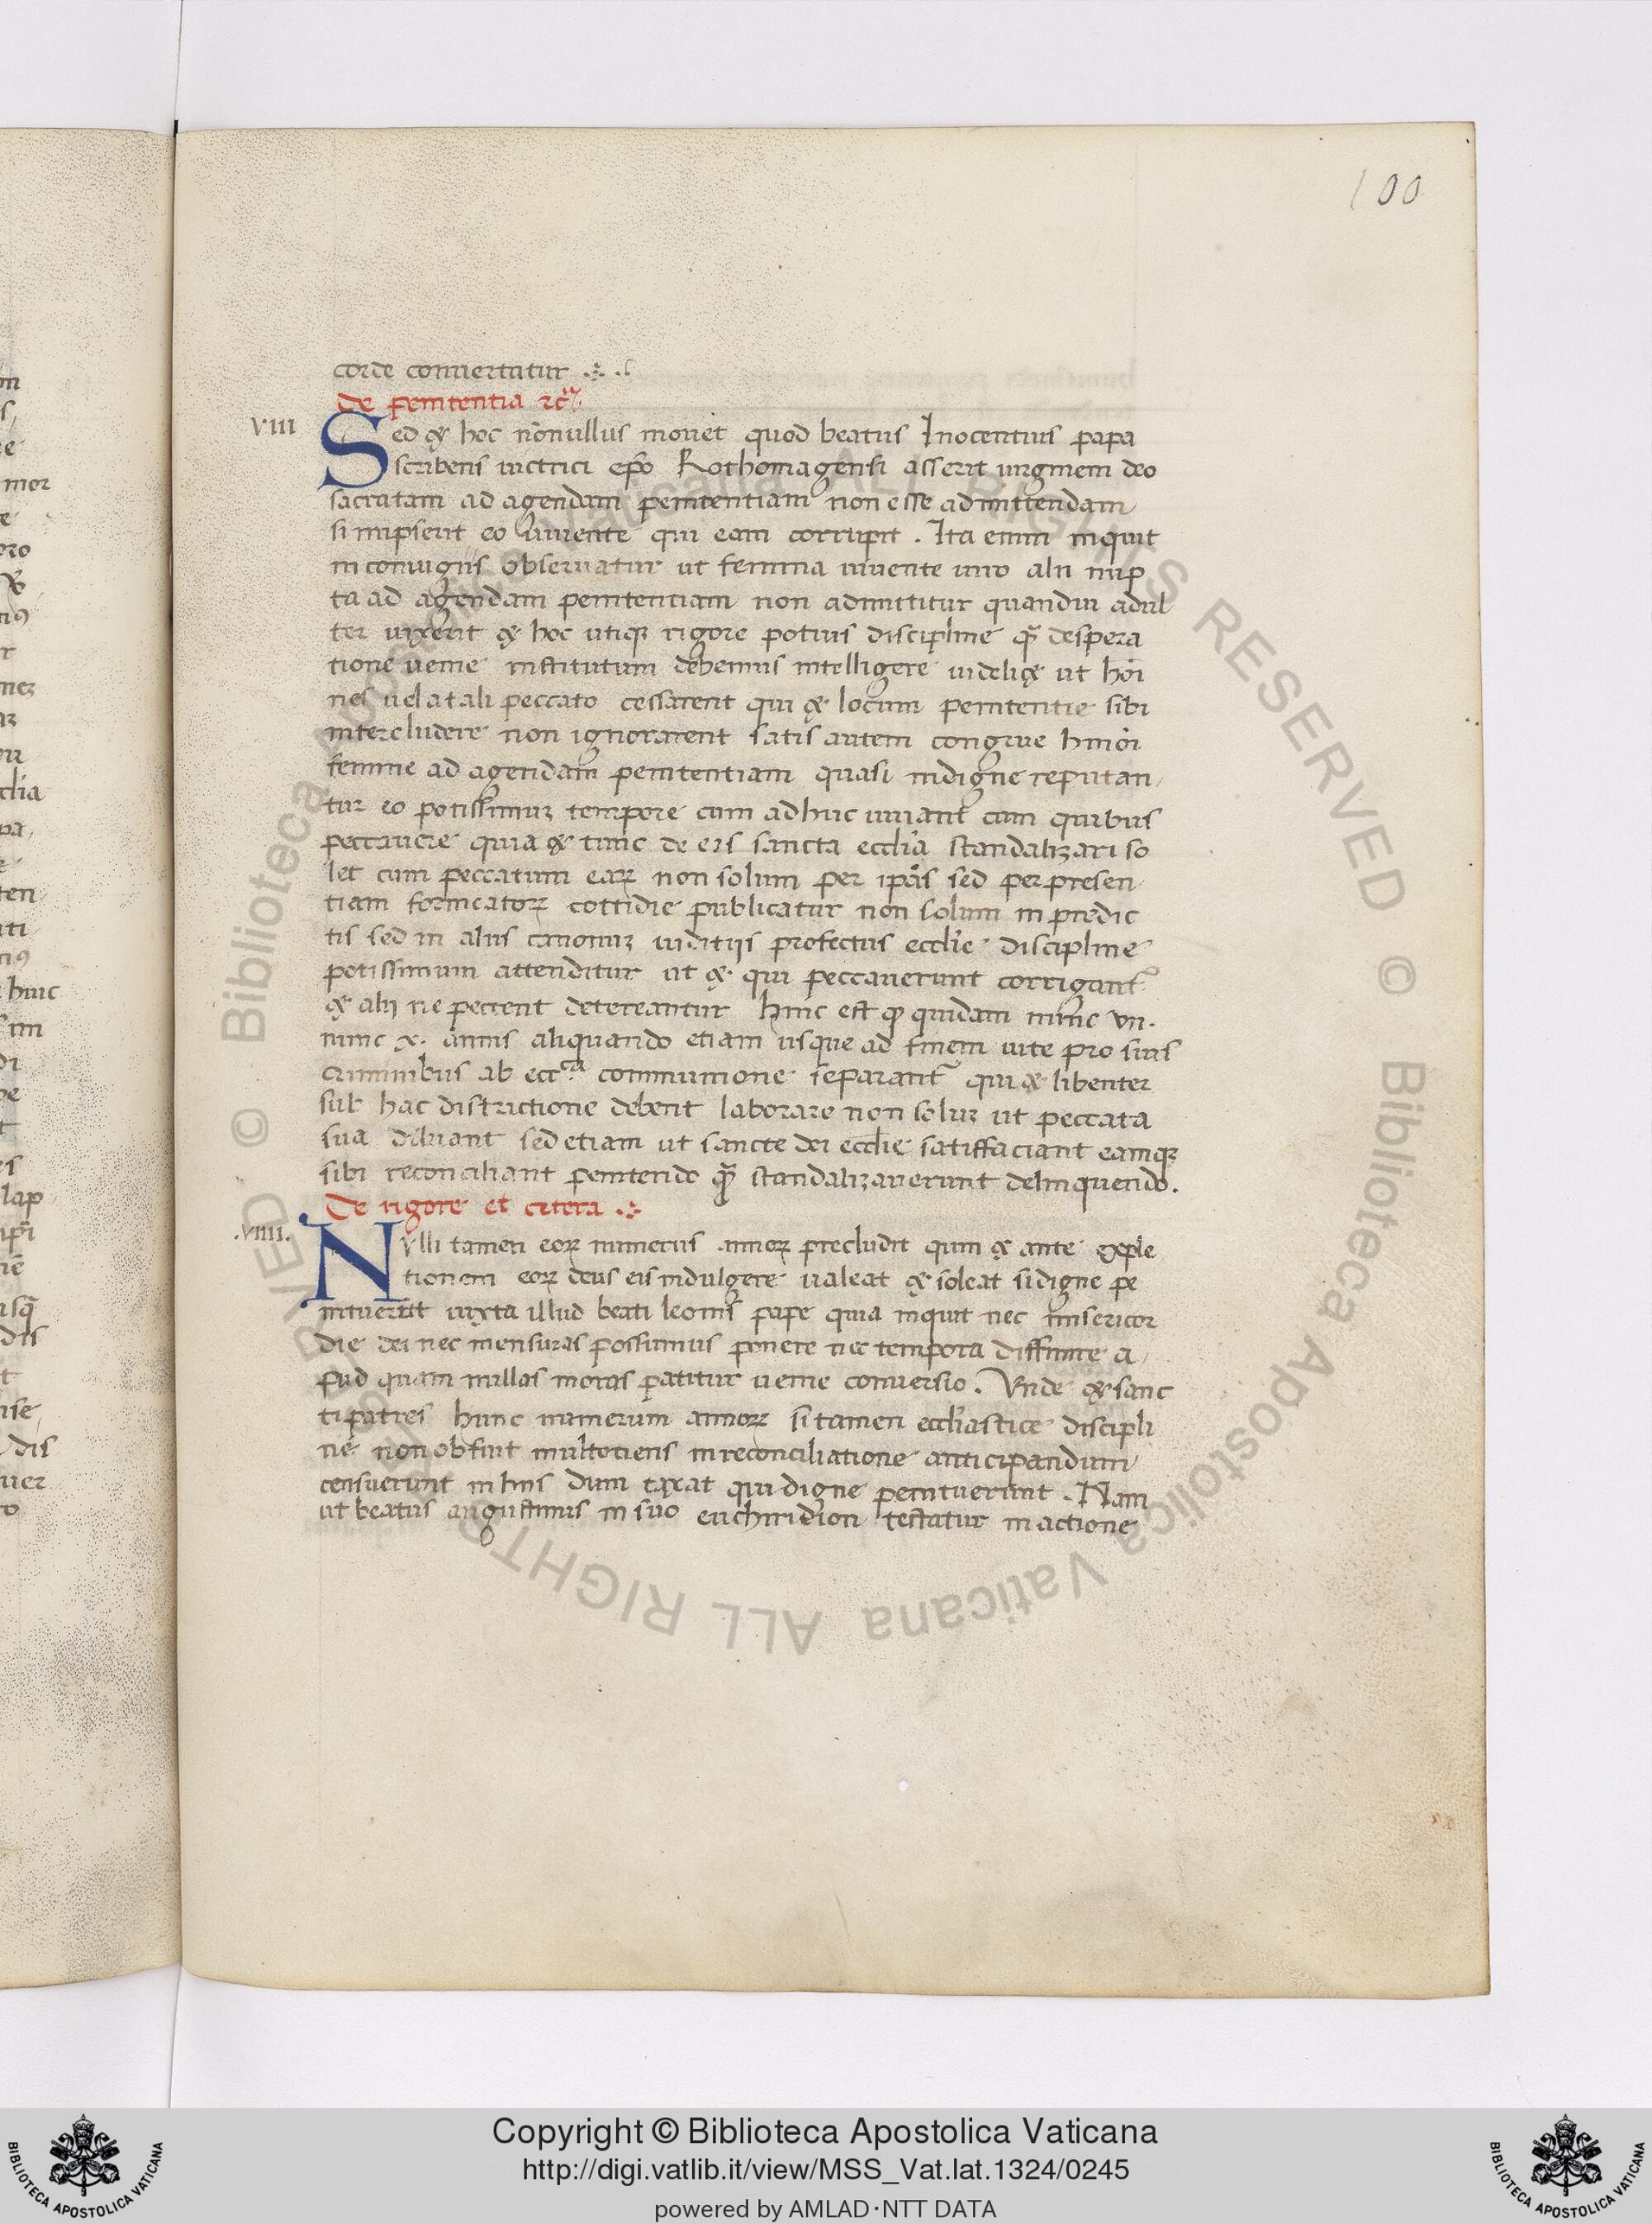 100
corde conuertatur
De penitentia rc̃
VIII
Sed & hoc nõnullus mouet quod beatus Inocentius papa
scribens uictrici ep̃o Rothomagensi asserit uirginem deo
sacratam ad agendam penitentiam non esse admittendam
si nupserit eo uiuente qui eam corrupit . Ita enim inquit
in coniugiis obseruatur ut femina uiuente uiro alii nup
ta ad agendam penitentiam non admittitur quandiu adul
ter uixerit & hoc utiqꝫ rigore potius discipline q̃ despera
tione uenie institutum debemus intelligere uidelic& ut hoĩ
nes uel a tali peccato cessarent qui & locum penitentie sibi
intercludere non ignorarent satis autem congrue hmõi
femine ad agendam penitentiam quasi indigne reputan
tur eo potissimuꝫ tempore cum adhuc uiuant cum quibus
peccauere quia & tunc de eis sancta eccl̃ia scandalizari so
let cum peccatum eaꝝ non solum per ip̃as sed per presen
tiam fornicatoꝝ cottidie publicatur non solum in predic
tis sed in aliis canonuꝫ iuditiis profectus eccl̃ie discipline
potissimum attenditur ut & qui peccauerunt corrigant᷑
& alij ne peccent detereantur hinc est ꝙ quidam nunc VII.
nunc x. annis aliquando etiam usque ad finem uite pro suis
criminibus ab ecc͠a communione separant᷑ qui & libenter
sub hac districtione debent laborare non soluꝫ ut peccata
sua diluant sed etiam ut sancte dei eccl̃ie satiffaciant eamqꝫ
sibi reconciliant penitendo q̃ scandalizauerunt delinquendo.
De rigore et citera
.VIIII.
NVlli tamen eoꝝ numerus annoꝝ precludit quin & ante exple
tionem eoꝝ deus eis indulgere ualeat & soleat si digne pe
nituerint iuxta illud beati leonis pape quia inquit nec misericor
die dei nec mensuras possumus ponere nec tempora diffinire a
pud quam nullas moras patitur uenie conuersio . Vnde & sanc
ti patres hunc numerum annoꝝ si tamen eccl̃iastice discipli
ne non obfiut multotiens in reconciliatione anticipandum
censuerunt in hiis dum taxat qui digne penituerunt . Nam
ut beatus augustinus in suo euchiridion testatur in actione
Copyright © Biblioteca Apostolica Vaticana
http://digi.vatlib.it/view/MSS_Vat.lat.1324/0245
powered by AMLAD·NTT DATA
BIBLIOTECA APOSTOLICA VATICANA
BIBLIOTECA APOSTOLICA VATICANA
© Biblioteca Apostolica Vaticana ALL RIGHTS RESERVED © Biblioteca Apostolica Vaticana ALL RIGHTS RESERVED